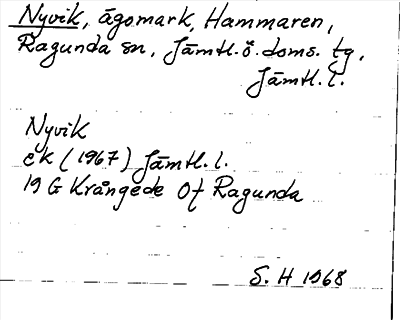 Nyvik, ägomark, Hammaren,
Ragunda sn, Jämtl. ö. doms. tg,
Jämtl. l.
Nyvik
ek (1967) Jämtl. l.
19 G Krångede Of Ragunda
S. H 1968